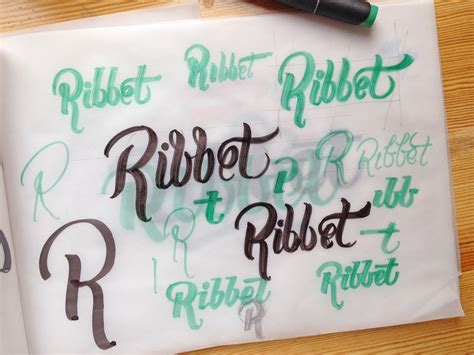 Ribbet Ribbet Ribbet
Ribbet
R
R Ribbet
t
ibb
R
Ribbet
t
R
Ribbet
Ribbet
R